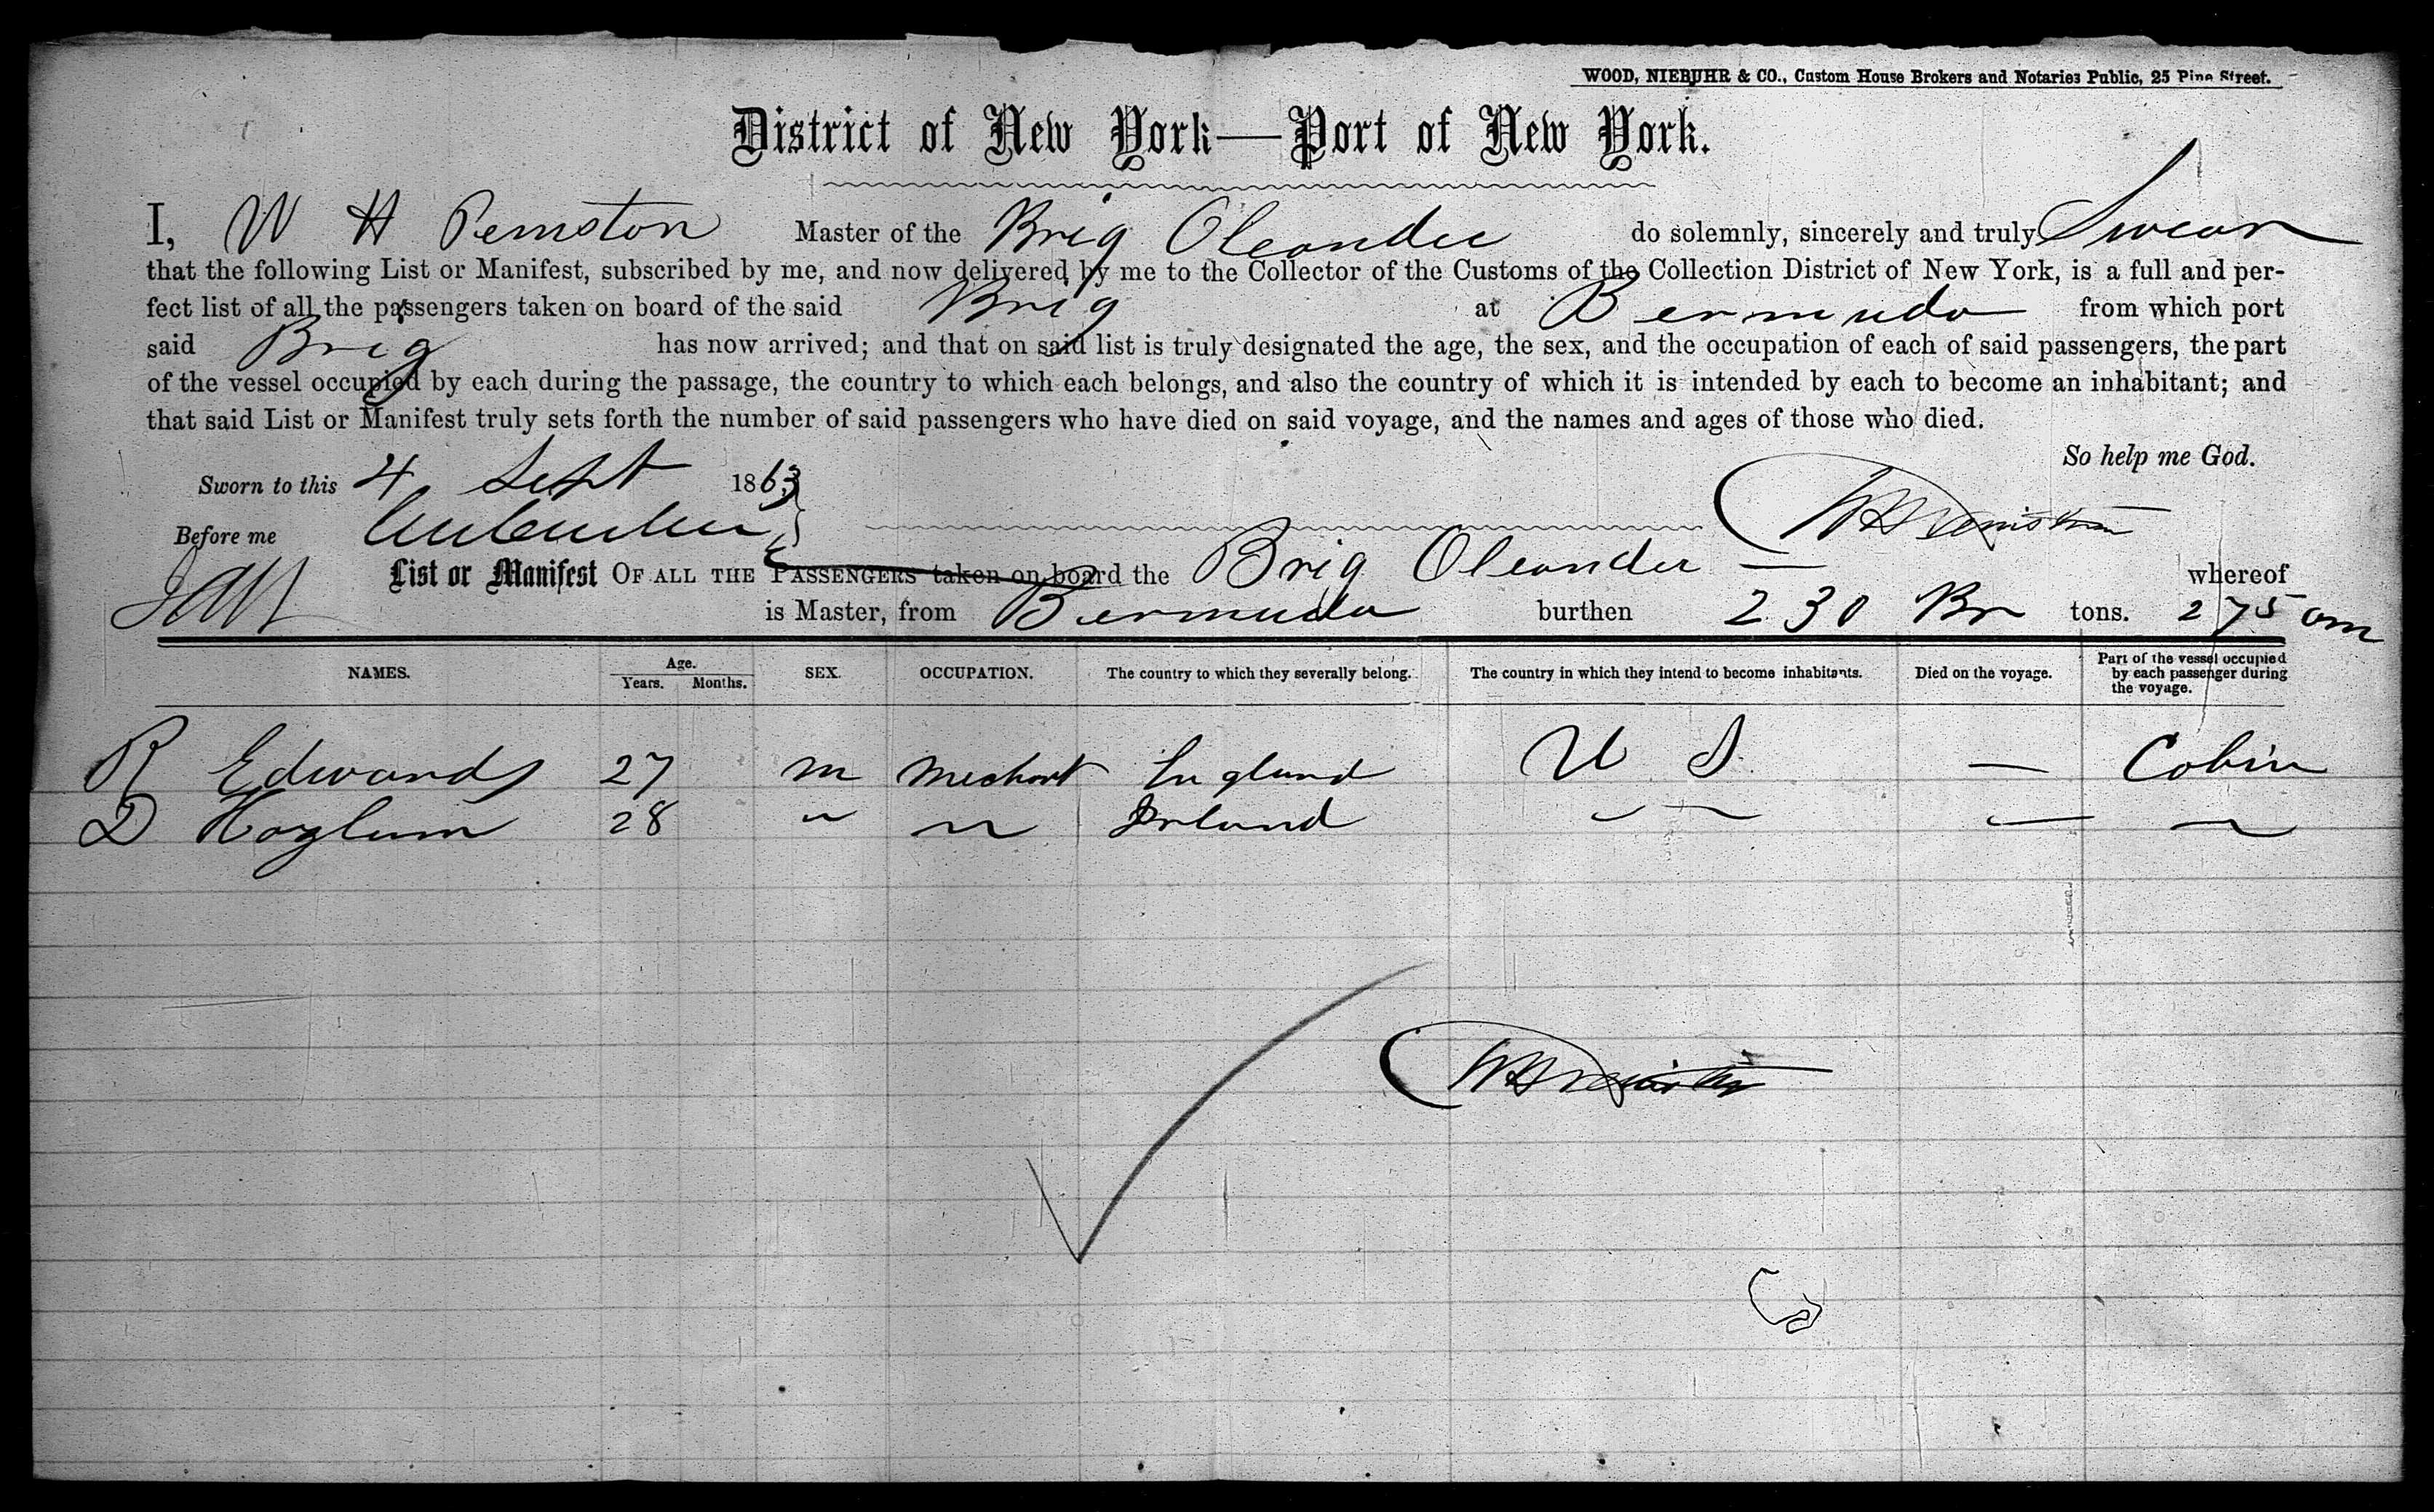 WOOD, NIEBUHR & CO., Custom House Brokers and Notaries Public, 25 Pine Street.
District of New York—Port of New York.
I, W H Peniston Master of the Brig Oleander do solemnly, sincerely and truly Swear
that the following List or Manifest, subscribed by me, and now delivered by me to the Collector of the Customs of the Collection District of New York, is a full and per-
fect list of all the passengers taken on board of the said Brig at Bermuda from which port
said Brig has now arrived; and that on said list is truly designated the age, the sex, and the occupation of each of said passengers, the part
of the vessel occupied by each during the passage, the country to which each belongs, and also the country of which it is intended by each to become an inhabitant; and
that said List or Manifest truly sets forth the number of said passengers who have died on said voyage, and the names and ages of those who died.
So help me God.
Sworn to this 4 Sept 1863
Before me
WH Peniston
List or Manifest OF ALL THE PASSENGERS taken on board the Brig Oleander — whereof
is Master, from Bermuda burthen 230 Br tons. 275 am
NAMES. Age. Years. Months. SEX. OCCUPATION. The country to which they severally belong. The country in which they intend to become inhabitants. Died on the voyage. Part of the vessel occupied by each passenger during the voyage.
R Edwards 27 m Mechant England U S. — Cabin
D 28 " " Irland " " — "
WH Peniston